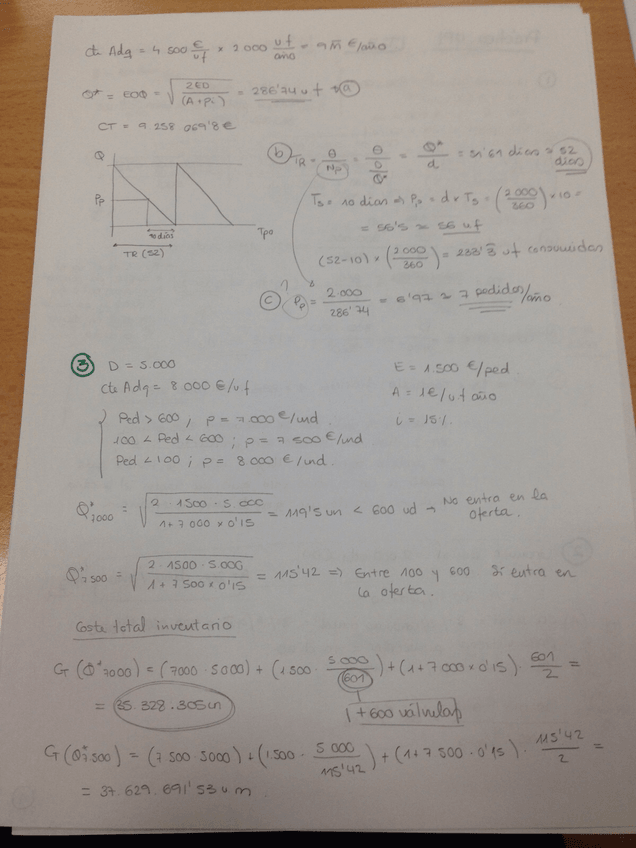 cte Adq = 4 500 €/uf × 2 000 uf/año = 9 M €/año
Q* = EOQ = √(2ED/(A+pi)) = 286'74 uf → a
CT = 9 258 069'8 €
b TR = θ/Np = θ/(D/Q*) = Q*/d = 51'61 dias = 52 dias
Q
Pp
10 dias
TR (52)
Tpo
Ts = 10 dias ⇒ Pp = d × Ts = (2 000/360) × 10 =
= 56'5 ≈ 56 uf
(52-10) × (2 000/360) = 233'3 uf consumidas
c Pp = 2.000/286'74 = 6'97 ≈ 7 pedidos/año
3 D = 5.000
cte Adq = 8 000 €/uf
Ped > 600, p = 7 000 €/und
100 < Ped < 600; p = 7 500 €/und
Ped < 100; p = 8 000 €/und.
E = 1.500 €/ped.
A = 1€/uf año
i = 15%
Q*7000 = √(2 · 1500 · 5 000/(1 + 7 000 × 0'15)) = 119'5 un < 600 ud → No entra en la
oferta.
Q*7500 = √(2 · 1500 · 5.000/(1 + 7 500 × 0'15)) = 115'42 ⇒ Entre 100 y 600 Si entra en
la oferta.
Coste total inventario
G (Q*7000) = (7000 · 5000) + (1 500 · 5.000/601) + (1 + 7 000 × 0'15) · 601/2 =
= 35.328.305 um
1 + 600 válvulas
G (Q*7500) = (7 500 5000) + (1.500 · 5 000/115'42) + (1 + 7 500 · 0'15) · 115'42/2 =
= 37.629.691'53 u m